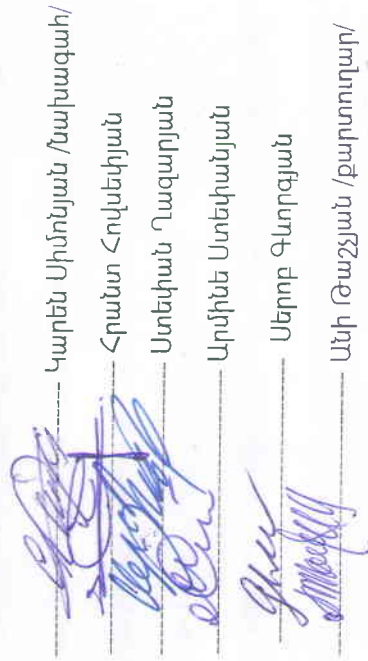 Կարեն Սիմոնյան /նախագահ/
Հրանտ Հովսեփյան
Ստեփան Ղազարյան
Արմինե Ստեփանյան
Սերոբ Գևորգյան
Անի Թաշչյան /քարտուղար/